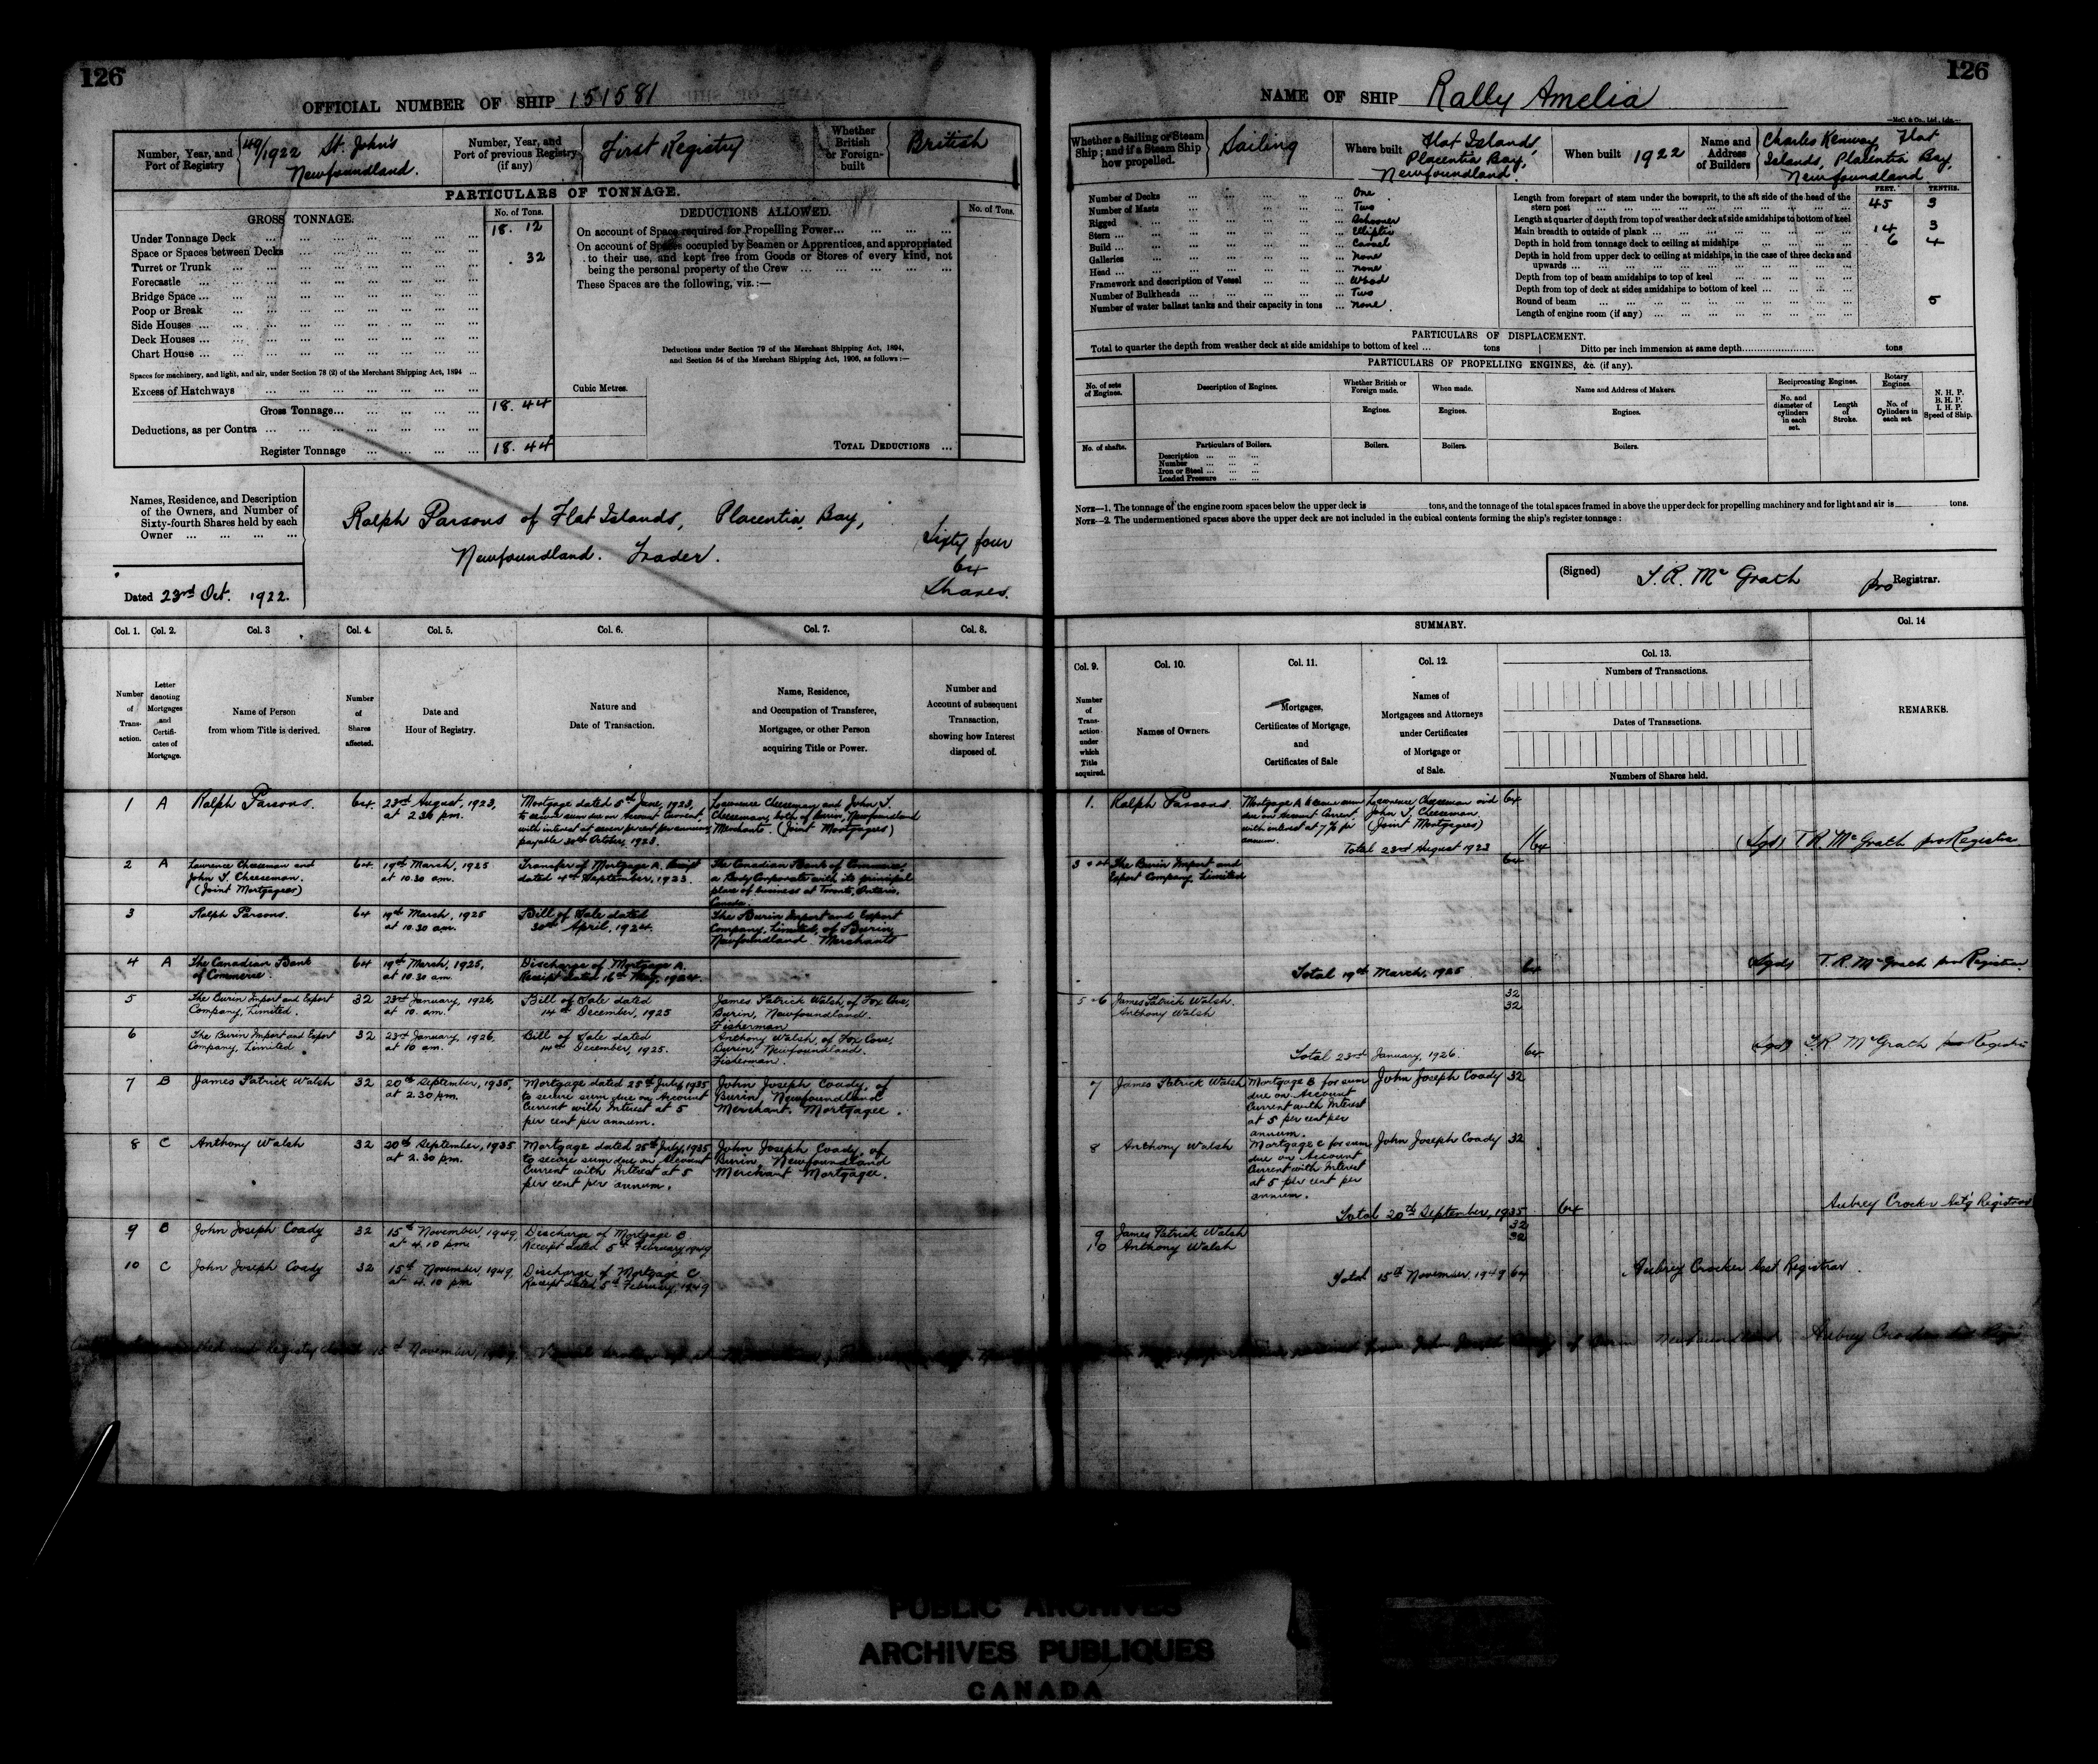 126
OFFICIAL NUMBER OF SHIP 151581
Number, Year, and Port of Registry
49/1922 St. John's
Newfoundland.
Number, Year, and Port of previous Registry (if any)
First Registry
Whether British or Foreign-built
British
PARTICULARS OF TONNAGE.
GROSS TONNAGE.
No. of Tons.
Under Tonnage Deck 18. 12
Space or Spaces between Decks
Turret or Trunk . 32
Forecastle
Bridge Space
Poop or Break
Side Houses
Deck Houses
Chart House
Spaces for machinery, and light, and air, under Section 78 (2) of the Merchant Shipping Act, 1894
Excess of Hatchways
Gross Tonnage 18. 44
Deductions, as per Contra
Register Tonnage 18. 44
Cubic Metres.
DEDUCTIONS ALLOWED.
No. of Tons.
On account of Space required for Propelling Power
On account of Spaces occupied by Seamen or Apprentices, and appropriated
to their use, and kept free from Goods or Stores of every kind, not
being the personal property of the Crew
These Spaces are the following, viz.:—
Deductions under Section 79 of the Merchant Shipping Act, 1894,
and Section 54 of the Merchant Shipping Act, 1906, as follows:—
TOTAL DEDUCTIONS
Names, Residence, and Description
of the Owners, and Number of
Sixty-fourth Shares held by each
Owner
Ralph Parsons of Flat Islands, Placentia Bay,
Newfoundland. Trader.
Sixty four
64
Shares.
Dated 23rd Oct. 1922.
126
NAME OF SHIP Rally Amelia
McC. & Co., Ltd., Ldn.
Whether a Sailing or Steam Ship; and if a Steam Ship how propelled.
Sailing
Where built
Flat Islands,
Placentia Bay,
Newfoundland.
When built 1922
Name and Address of Builders
Charles Kenway, Flat
Islands, Placentia Bay,
Newfoundland
Number of Decks One
Number of Masts Two
Rigged Schooner
Stern Elliptic
Build Carvel
Galleries None
Head None
Framework and description of Vessel Wood
Number of Bulkheads Two
Number of water ballast tanks and their capacity in tons None
FEET. TENTHS.
Length from forepart of stem under the bowsprit, to the aft side of the head of the
stern post 45 3
Length at quarter of depth from top of weather deck at side amidships to bottom of keel
Main breadth to outside of plank 14 3
Depth in hold from tonnage deck to ceiling at midships 6 4
Depth in hold from upper deck to ceiling at midships, in the case of three decks and
upwards
Depth from top of beam amidships to top of keel
Depth from top of deck at sides amidships to bottom of keel
Round of beam 5
Length of engine room (if any)
PARTICULARS OF DISPLACEMENT.
Total to quarter the depth from weather deck at side amidships to bottom of keel tons
Ditto per inch immersion at same depth tons
PARTICULARS OF PROPELLING ENGINES, &c. (if any).
No. of sets of Engines.
Description of Engines.
Whether British or Foreign made.
When made.
Name and Address of Makers.
Reciprocating Engines.
Rotary Engines.
N. H. P.
B. H. P.
I. H. P.
Speed of Ship.
Engines. Engines. Engines.
No. and diameter of cylinders in each set.
Length of Stroke.
No. of Cylinders in each set.
No. of shafts.
Particulars of Boilers.
Boilers. Boilers. Boilers.
Description
Number
Iron or Steel
Loaded Pressure
NOTE—1. The tonnage of the engine room spaces below the upper deck is tons, and the tonnage of the total spaces framed in above the upper deck for propelling machinery and for light and air is tons.
NOTE—2. The undermentioned spaces above the upper deck are not included in the cubical contents forming the ship's register tonnage:
(Signed) T. R. McGrath pro Registrar.
Col. 1. Col. 2. Col. 3 Col. 4. Col. 5. Col. 6. Col. 7. Col. 8.
Number of Transaction.
Letter denoting Mortgages and Certificates of Mortgage.
Name of Person
from whom Title is derived.
Number of Shares affected.
Date and
Hour of Registry.
Nature and
Date of Transaction.
Name, Residence,
and Occupation of Transferee,
Mortgagee, or other Person
acquiring Title or Power.
Number and
Account of subsequent
Transaction,
showing how Interest
disposed of.
1 A Ralph Parsons. 64. 23rd August, 1923,
at 2.30 pm.
Mortgage dated 5th June, 1923,
to secure sum due on Account Current,
with interest at seven per cent per annum,
payable 30th October, 1923.
Lawrence Cheeseman and John T.
Cheeseman, both of Burin, Newfoundland
Merchants. (Joint Mortgagees)
2 A Lawrence Cheeseman and
John T. Cheeseman.
(Joint Mortgagees)
64. 19th March, 1925
at 10.30 am.
Transfer of Mortgage A.
dated 4th September, 1923.
The Canadian Bank of Commerce
a Body Corporate with its principal
place of business at Toronto, Ontario,
Canada.
3 Ralph Parsons. 64 19th March, 1925
at 10.30 am.
Bill of Sale dated
30th April, 1924.
The Burin Import and Export
Company, Limited, of Burin,
Newfoundland. Merchants
4 A The Canadian Bank
of Commerce.
64 19th March, 1925,
at 10.30 am.
Discharge of Mortgage A.
Receipt dated 16th May, 1924.
5 The Burin Import and Export
Company, Limited.
32 23rd January, 1926,
at 10. am.
Bill of Sale dated
14th December, 1925
James Patrick Walsh, of Fox Cove,
Burin, Newfoundland.
Fisherman
6 The Burin Import and Export
Company, Limited
32 23rd January, 1926,
at 10 am.
Bill of Sale dated
14th December, 1925.
Anthony Walsh, of Fox Cove,
Burin, Newfoundland.
Fisherman.
7 B James Patrick Walsh 32 20th September, 1935,
at 2.30 pm.
Mortgage dated 25th July, 1935
to secure sum due on Account
Current with Interest at 5
per cent per annum.
John Joseph Coady, of
Burin, Newfoundland
Merchant. Mortgagee.
8 C Anthony Walsh 32 20th September, 1935
at 2.30 pm.
Mortgage dated 25th July, 1935,
to secure sum due on Account
Current with Interest at 5
per cent per annum.
John Joseph Coady, of
Burin, Newfoundland
Merchant Mortgagee.
9 B John Joseph Coady 32 15th November, 1949,
at 4.10 pm.
Discharge of Mortgage B
Receipt dated 5th February, 1949
10 C John Joseph Coady 32 15th November, 1949,
at 4.10 pm
Discharge of Mortgage C
Receipt dated 5th February, 1949
SUMMARY.
Col. 9. Col. 10. Col. 11. Col. 12. Col. 13. Col. 14
Number of Transaction under which Title acquired.
Names of Owners.
Mortgages,
Certificates of Mortgage,
and
Certificates of Sale
Names of
Mortgagees and Attorneys
under Certificates
of Mortgage or
of Sale.
Numbers of Transactions.
Dates of Transactions.
Numbers of Shares held.
REMARKS.
1. Ralph Parsons.
Mortgage A to secure sum
due on Account Current
with interest at 7% per
annum.
Lawrence Cheeseman and
John T. Cheeseman.
(Joint Mortgagees)
64
Total 23rd August 1923 64
(Sgd) T. R. McGrath pro Registrar
3 & 4 The Burin Import and
Export Company, Limited
64
Total 19th March, 1925 64
(Sgd) T. R. McGrath pro Registrar
5 & 6 James Patrick Walsh. 32
Anthony Walsh 32
Total 23rd January, 1926. 64
(Sgd) T. R. McGrath Registrar
7 James Patrick Walsh
Mortgage B for sum
due on Account
Current with Interest
at 5 per cent per
annum.
John Joseph Coady 32
8 Anthony Walsh
Mortgage C for sum
due on Account
Current with Interest
at 5 per cent per
annum.
John Joseph Coady 32
Total 20th September, 1935 64
Aubrey Crocker Act'g Registrar
9 James Patrick Walsh 32
10 Anthony Walsh 32
Total 15th November, 1949 64
Aubrey Crocker Asst Registrar.
and Registry closed 15th November, 1949. Vessel broken up at
received from John Joseph Coady of Burin Newfoundland. Aubrey Crocker
PUBLIC ARCHIVES
ARCHIVES PUBLIQUES
CANADA